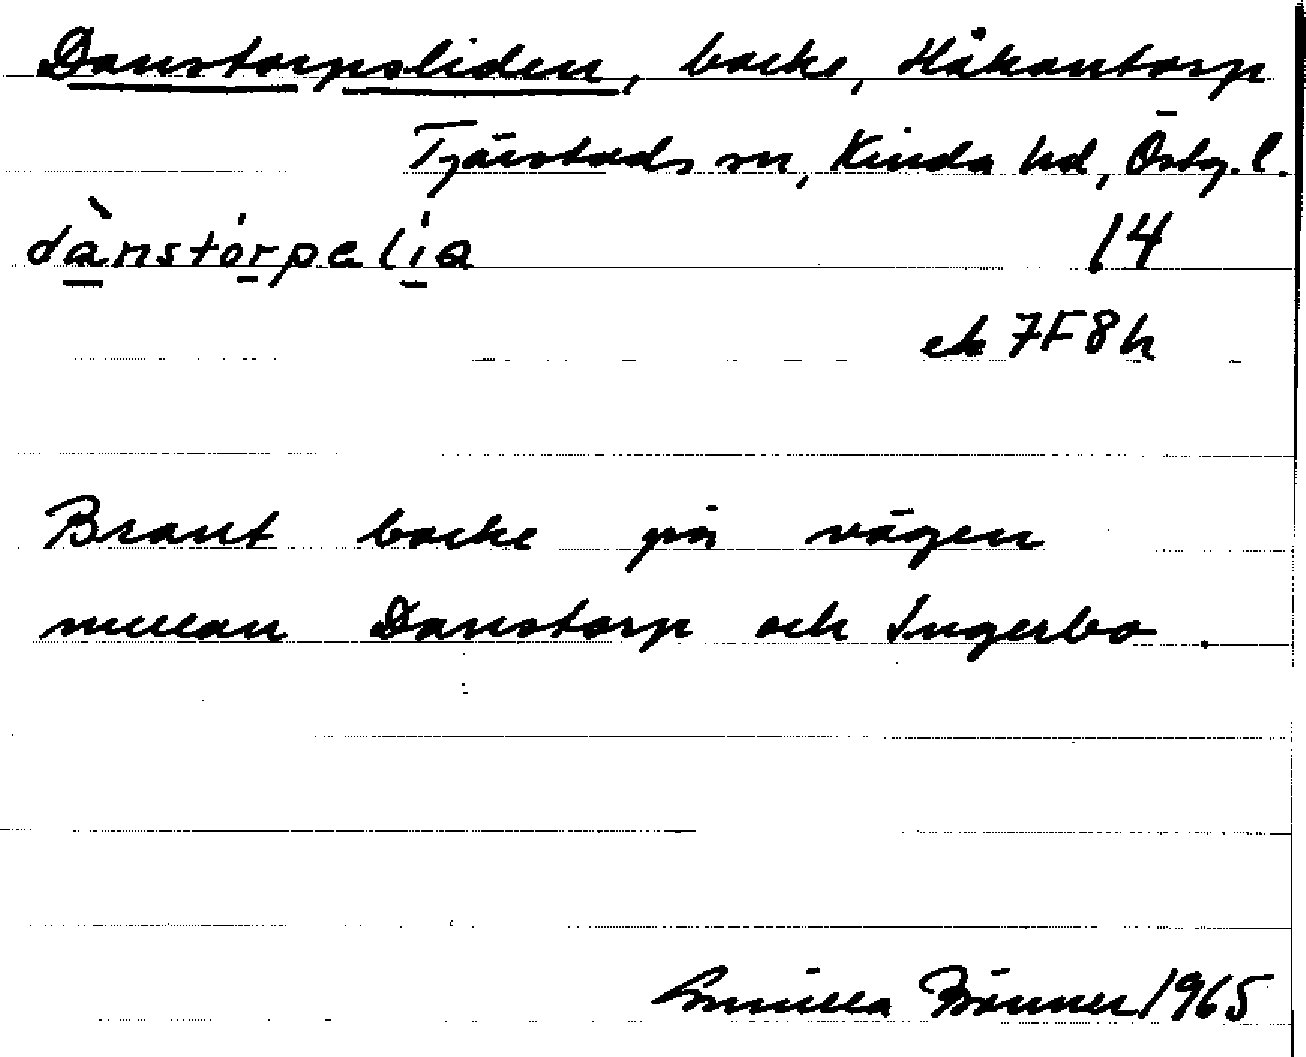 Danstorpsliden, backe, Håkantorp
Tjärstads sn, Kinda hd, Östg. l.
dànstórpəlía
14
ek 7F8h
Brant backe på vägen
mellan Danstorp och Ingerbo.
Gunilla Brönner 1965